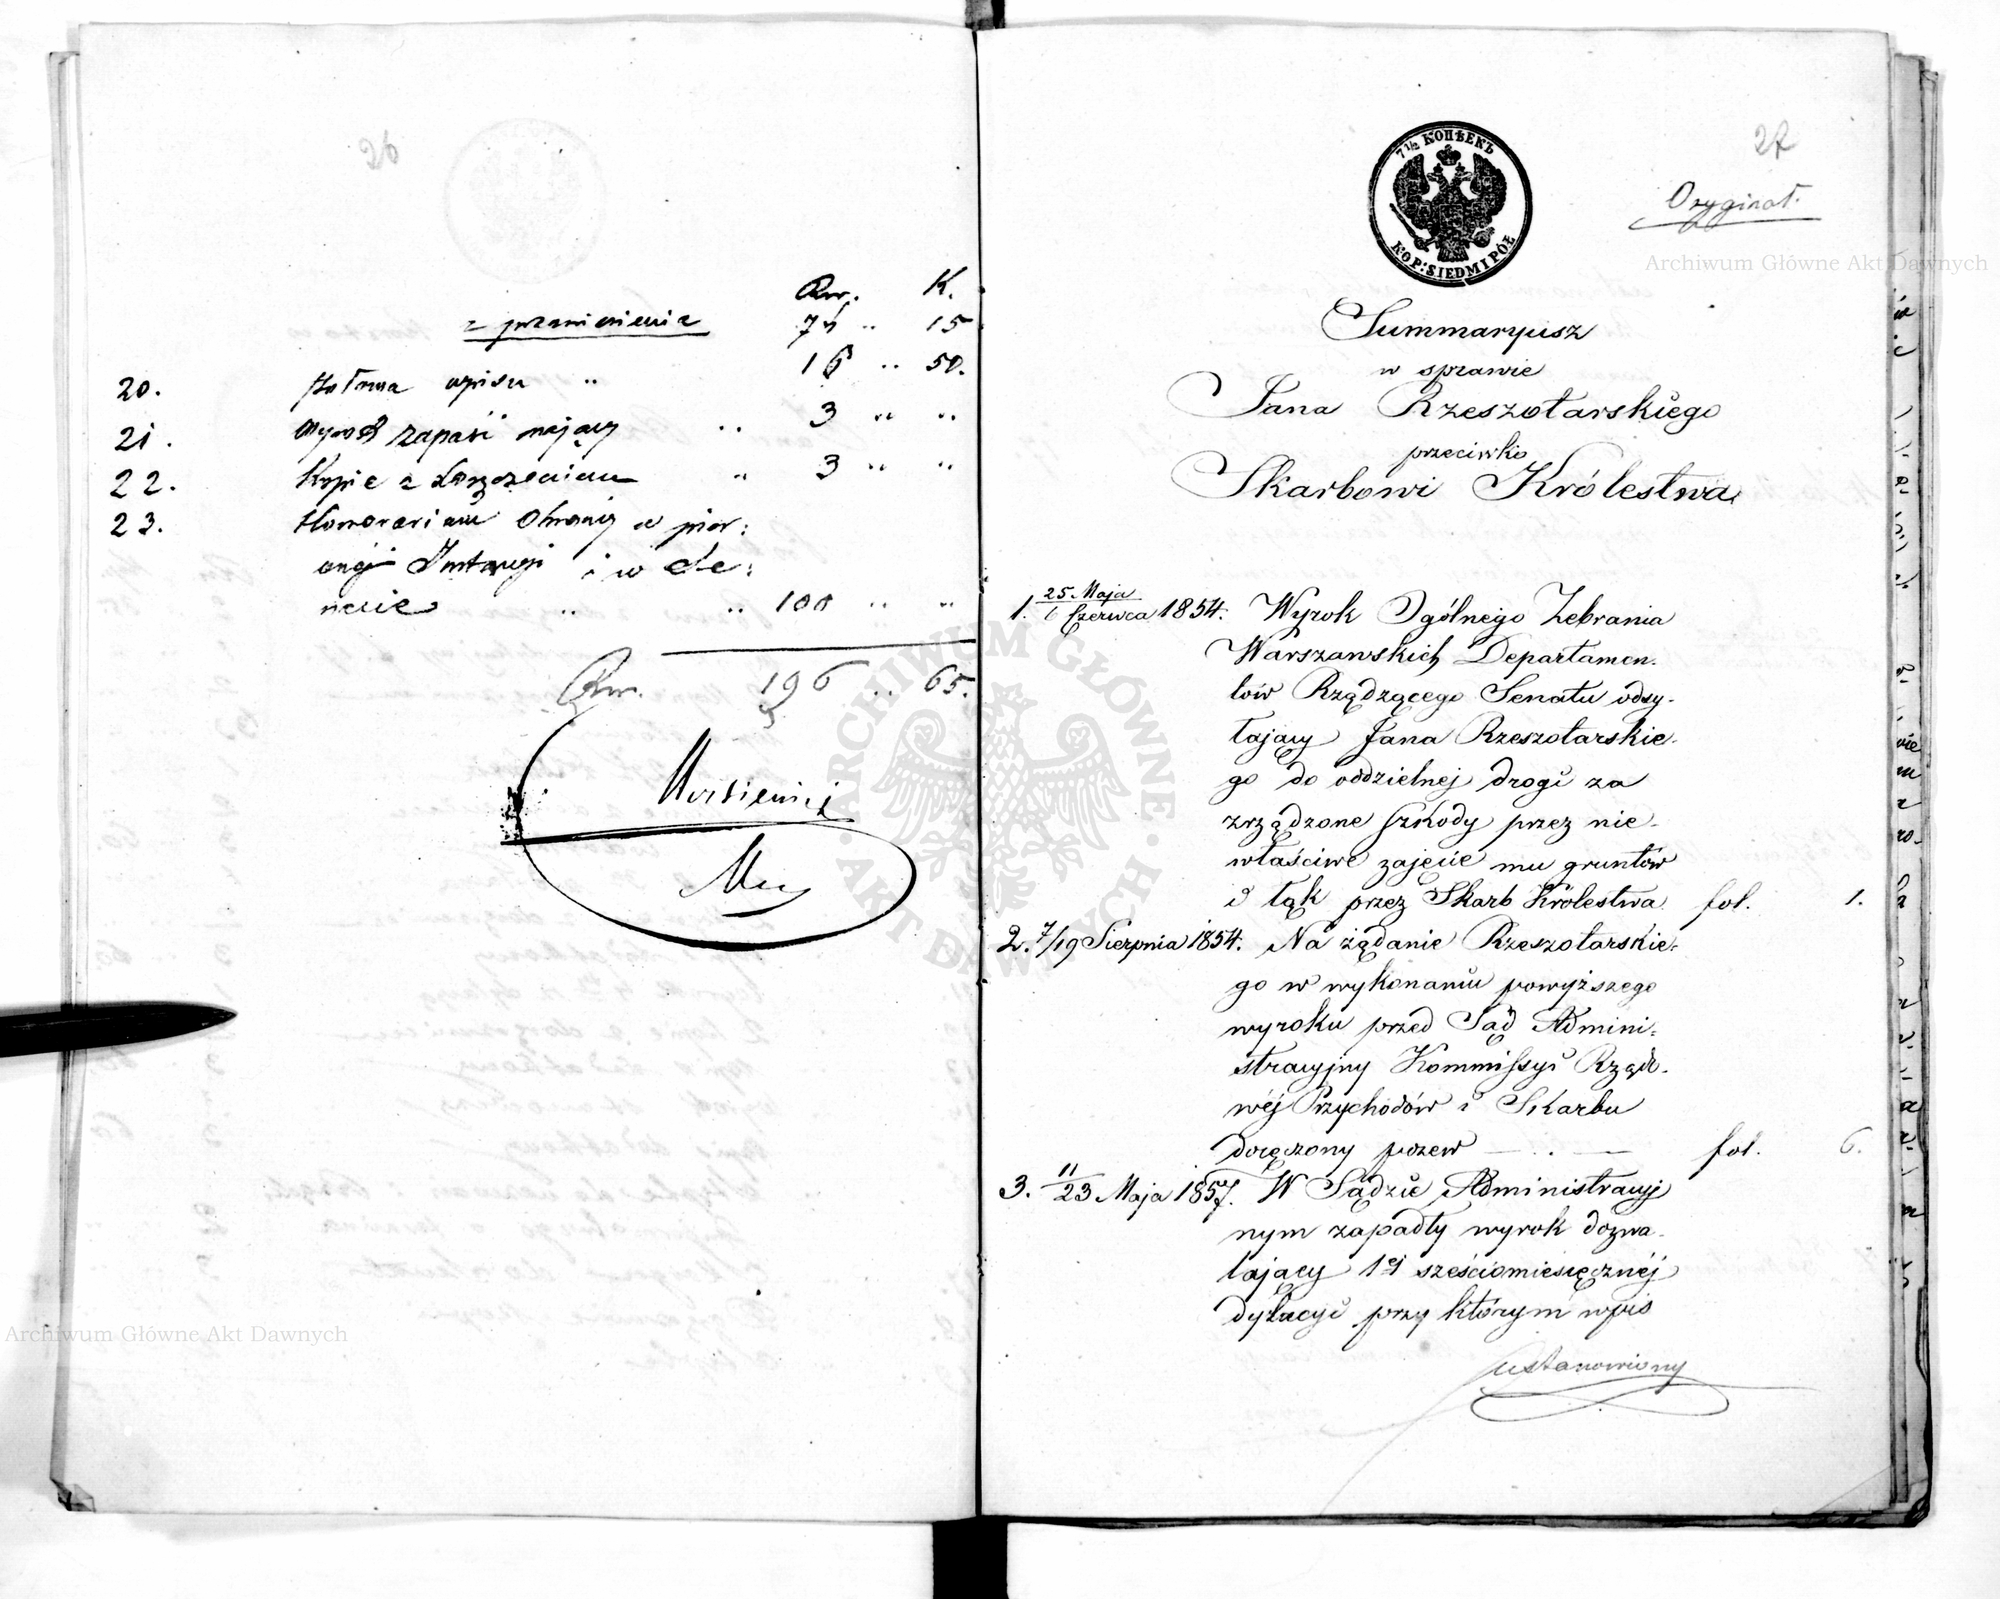 26
Rsr. K.
z przeniesienia 74 .. 15
20. Połowa wpisu .. 16 .. 50.
21. Wyrok zapaść mający .. 3 .. ..
22. Kopie z doręczeniem .. 3 .. ..
23. Honorarium Obrony w pier:
wszej Instancyi i w Se:
nacie .. .. 100 .. ..
Rsr. 196 .. 65.
27
Oryginał.
7 1/2 КОПѢЕКЪ
KOP: SIEDM I PÓŁ
Summaryusz
w sprawie
Jana Rzeszotarskiego
przeciwko
Skarbowi Królestwa
1. 25. Maja / 6 Czerwca 1854. Wyrok Ogólnego Zebrania
Warszawskich Departamen-
tów Rządzącego Senatu odsy-
łający Jana Rzeszotarskie-
go do oddzielnej drogi za
zrządzone szkody przez nie-
właściwe zajęcie mu gruntów
i łąk przez Skarb Królestwa fol. 1.
2. 7/19 Sierpnia 1854. Na żądanie Rzeszotarskie-
go w wykonaniu powyższego
wyroku przed Sąd Admini-
stracyjny Kommissyi Rządo-
wéj Przychodów i Skarbu
doręczony pozew — . — fol. 6.
3. 11/23 Maja 1857. W Sądzie Administracyj
nym zapadły wyrok dozwa-
lający 1éj sześciomiesięcznéj
dylacyi przy którym wpis
ustanowiony
Archiwum Główne Akt Dawnych
ARCHIWUM GŁÓWNE · AKT DAWNYCH ·
Archiwum Główne Akt Dawnych